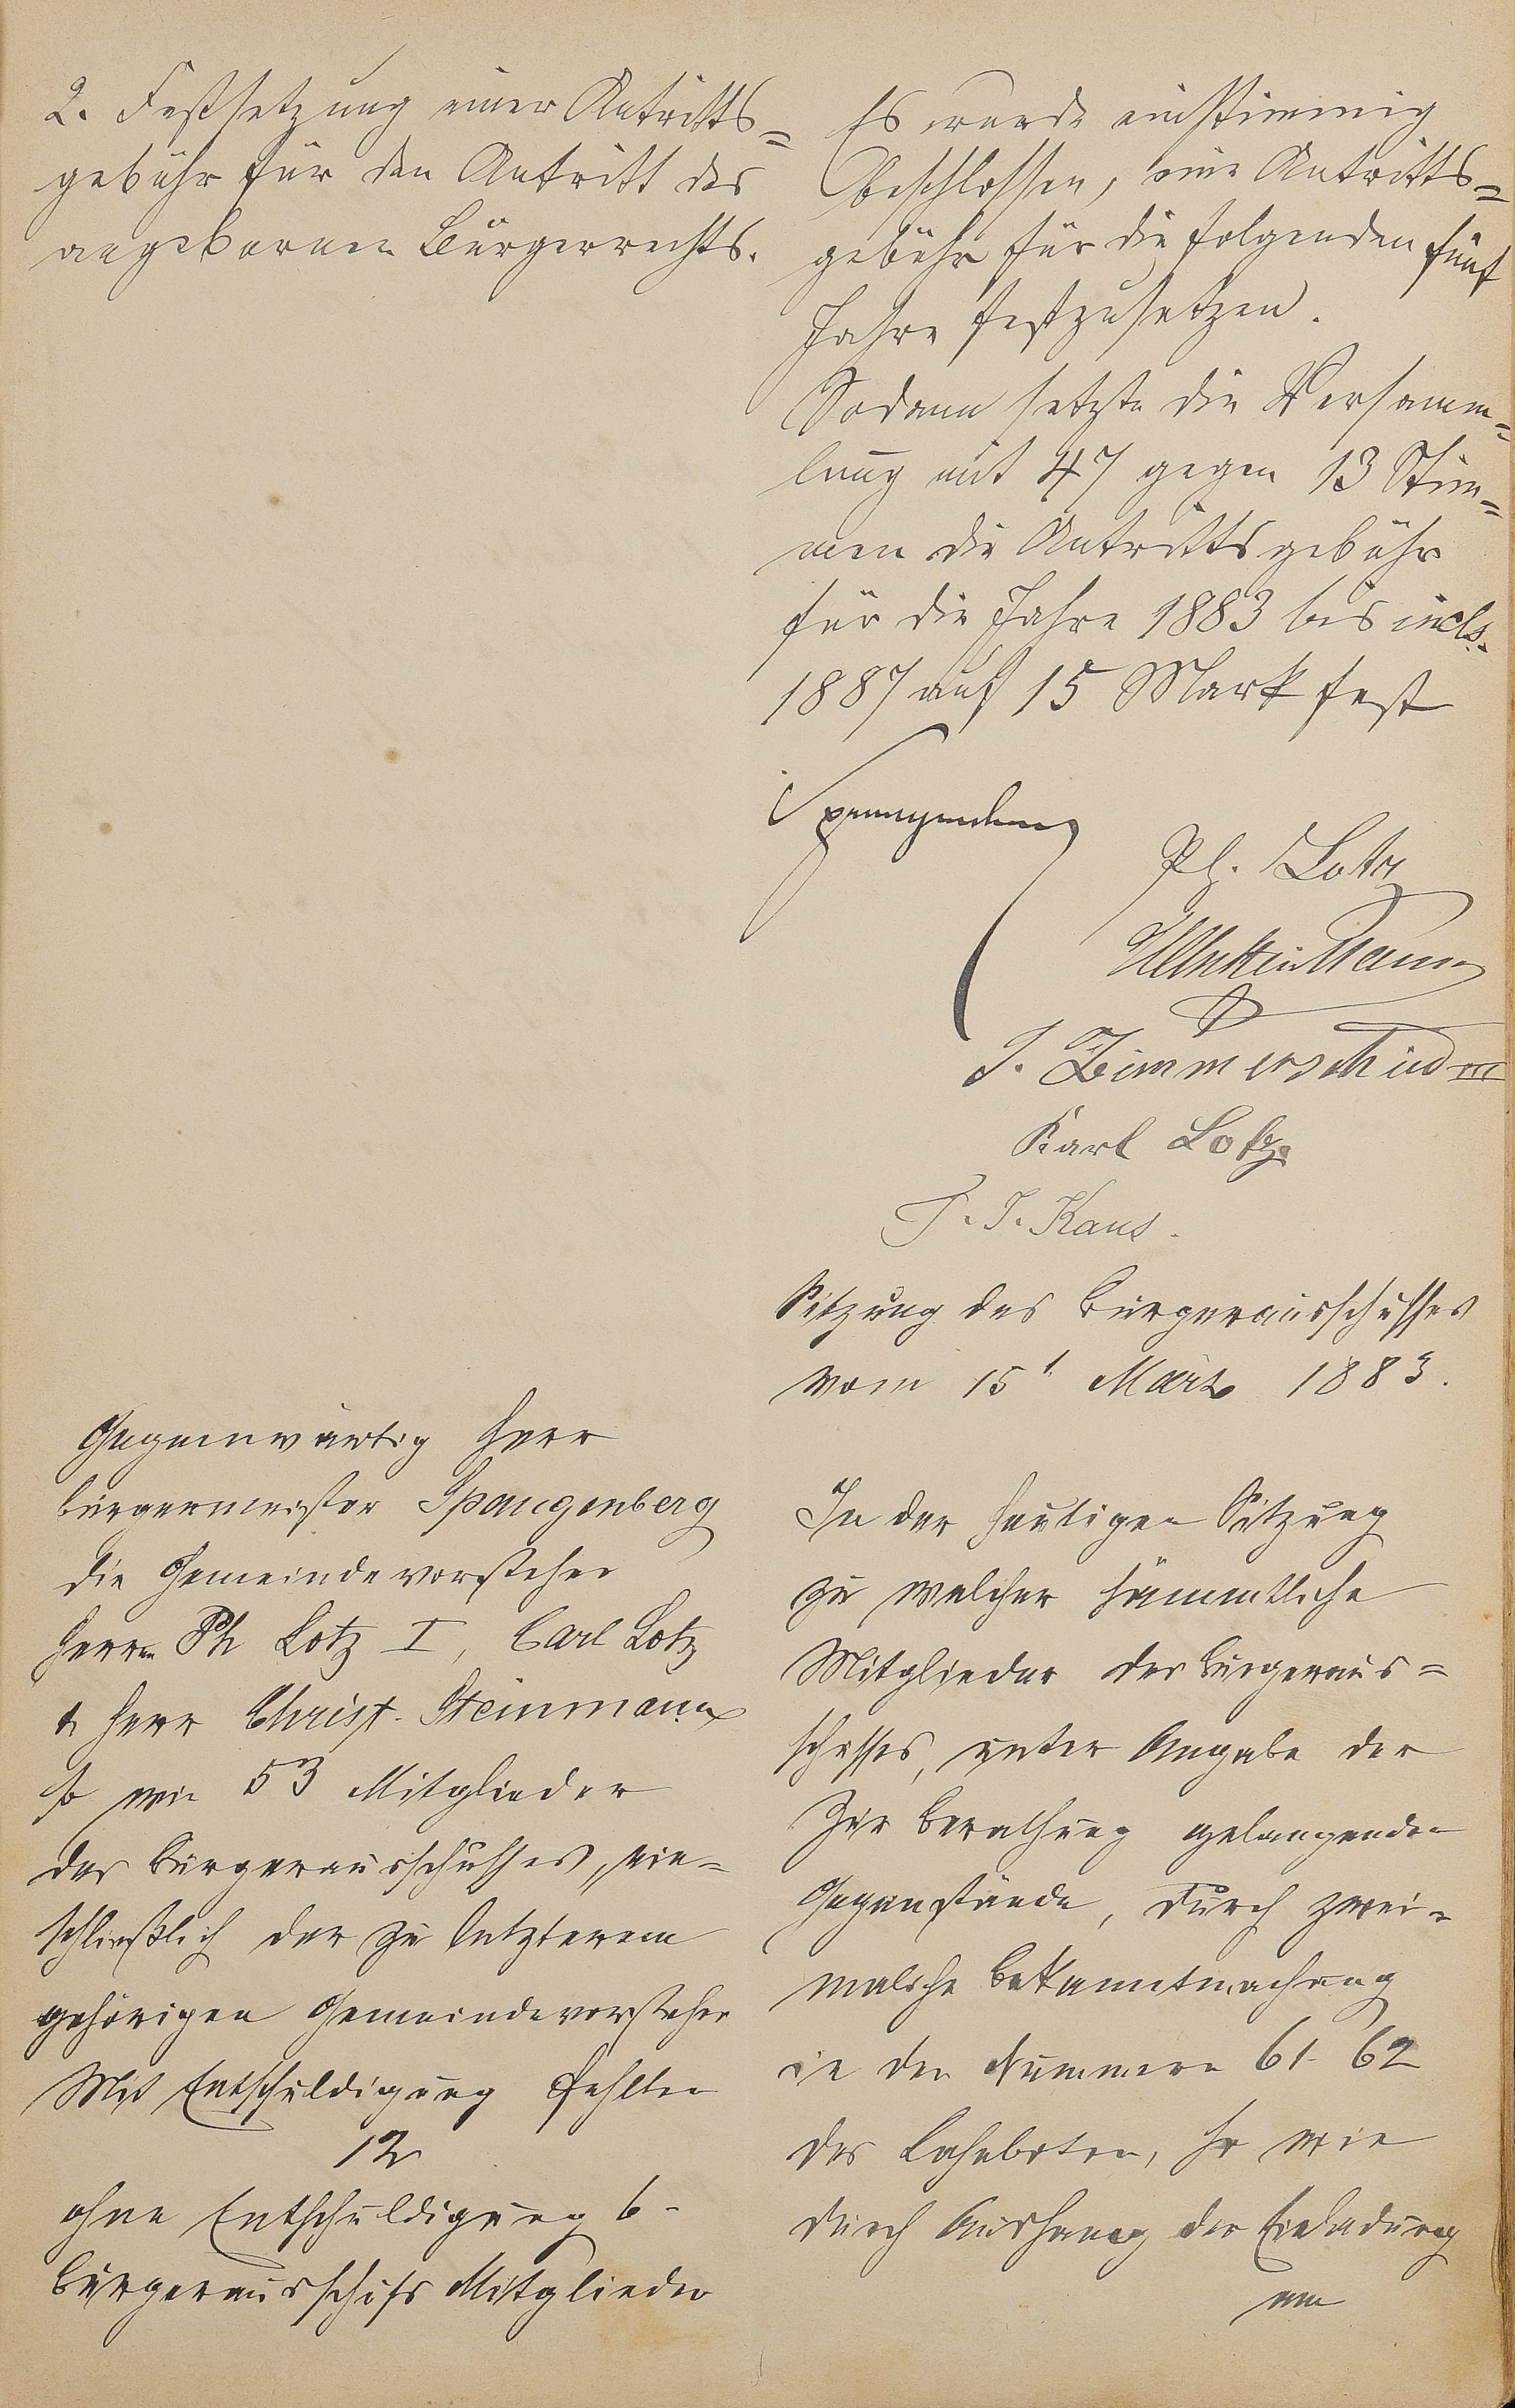 2. Festsetzung einer Antritts=
gebühr für den Antritt des
angebornen Bürgerrechts.
Es wurde einstimmig
beschlossen, eine Antritts=
gebühr für die folgenden fünf
Jahre festzusetzen.
Sodann setzte die Versamm=
lung mit 47 gegen 13 Stim=
men die Antrittsgebühr
für die Jahre 1883 bis incls.
1887 auf 15 Mark fest
Spangenberg
Ph. Lotz
Steinmann
J. Zimmerschied III
Karl Lotz
J. J. Kaus.
Sitzung des Bürgerausschusses
vom 15t März 1883.
Gegenwärtig Herr
Bürgermeister Spangenberg
die Gemeindevorsteher
Herrn Ph Lotz I, Carl Lotz
& Herr Christ. Steinmann
so wie 53 Mitglieder
des Bürgerausschusses, ein=
schließlich der zu letzterem
gehörigen Gemeindevorsteher
Mit Entschuldigung fehlten
12
ohne Entschuldigung 6-
Bürgerausschuss Mitglieder
In der heutigen Sitzung
zu welcher sämmtliche
Mitglieder des Bürgeraus=
schusses, unter Angabe der
Zur Berathung gelangenden
Gegenstände, durch zwei-
malige Bekanntmachung
in den Nummern 61- 62
des Lahnboten, so wie
durch Aushang der Einladung
am